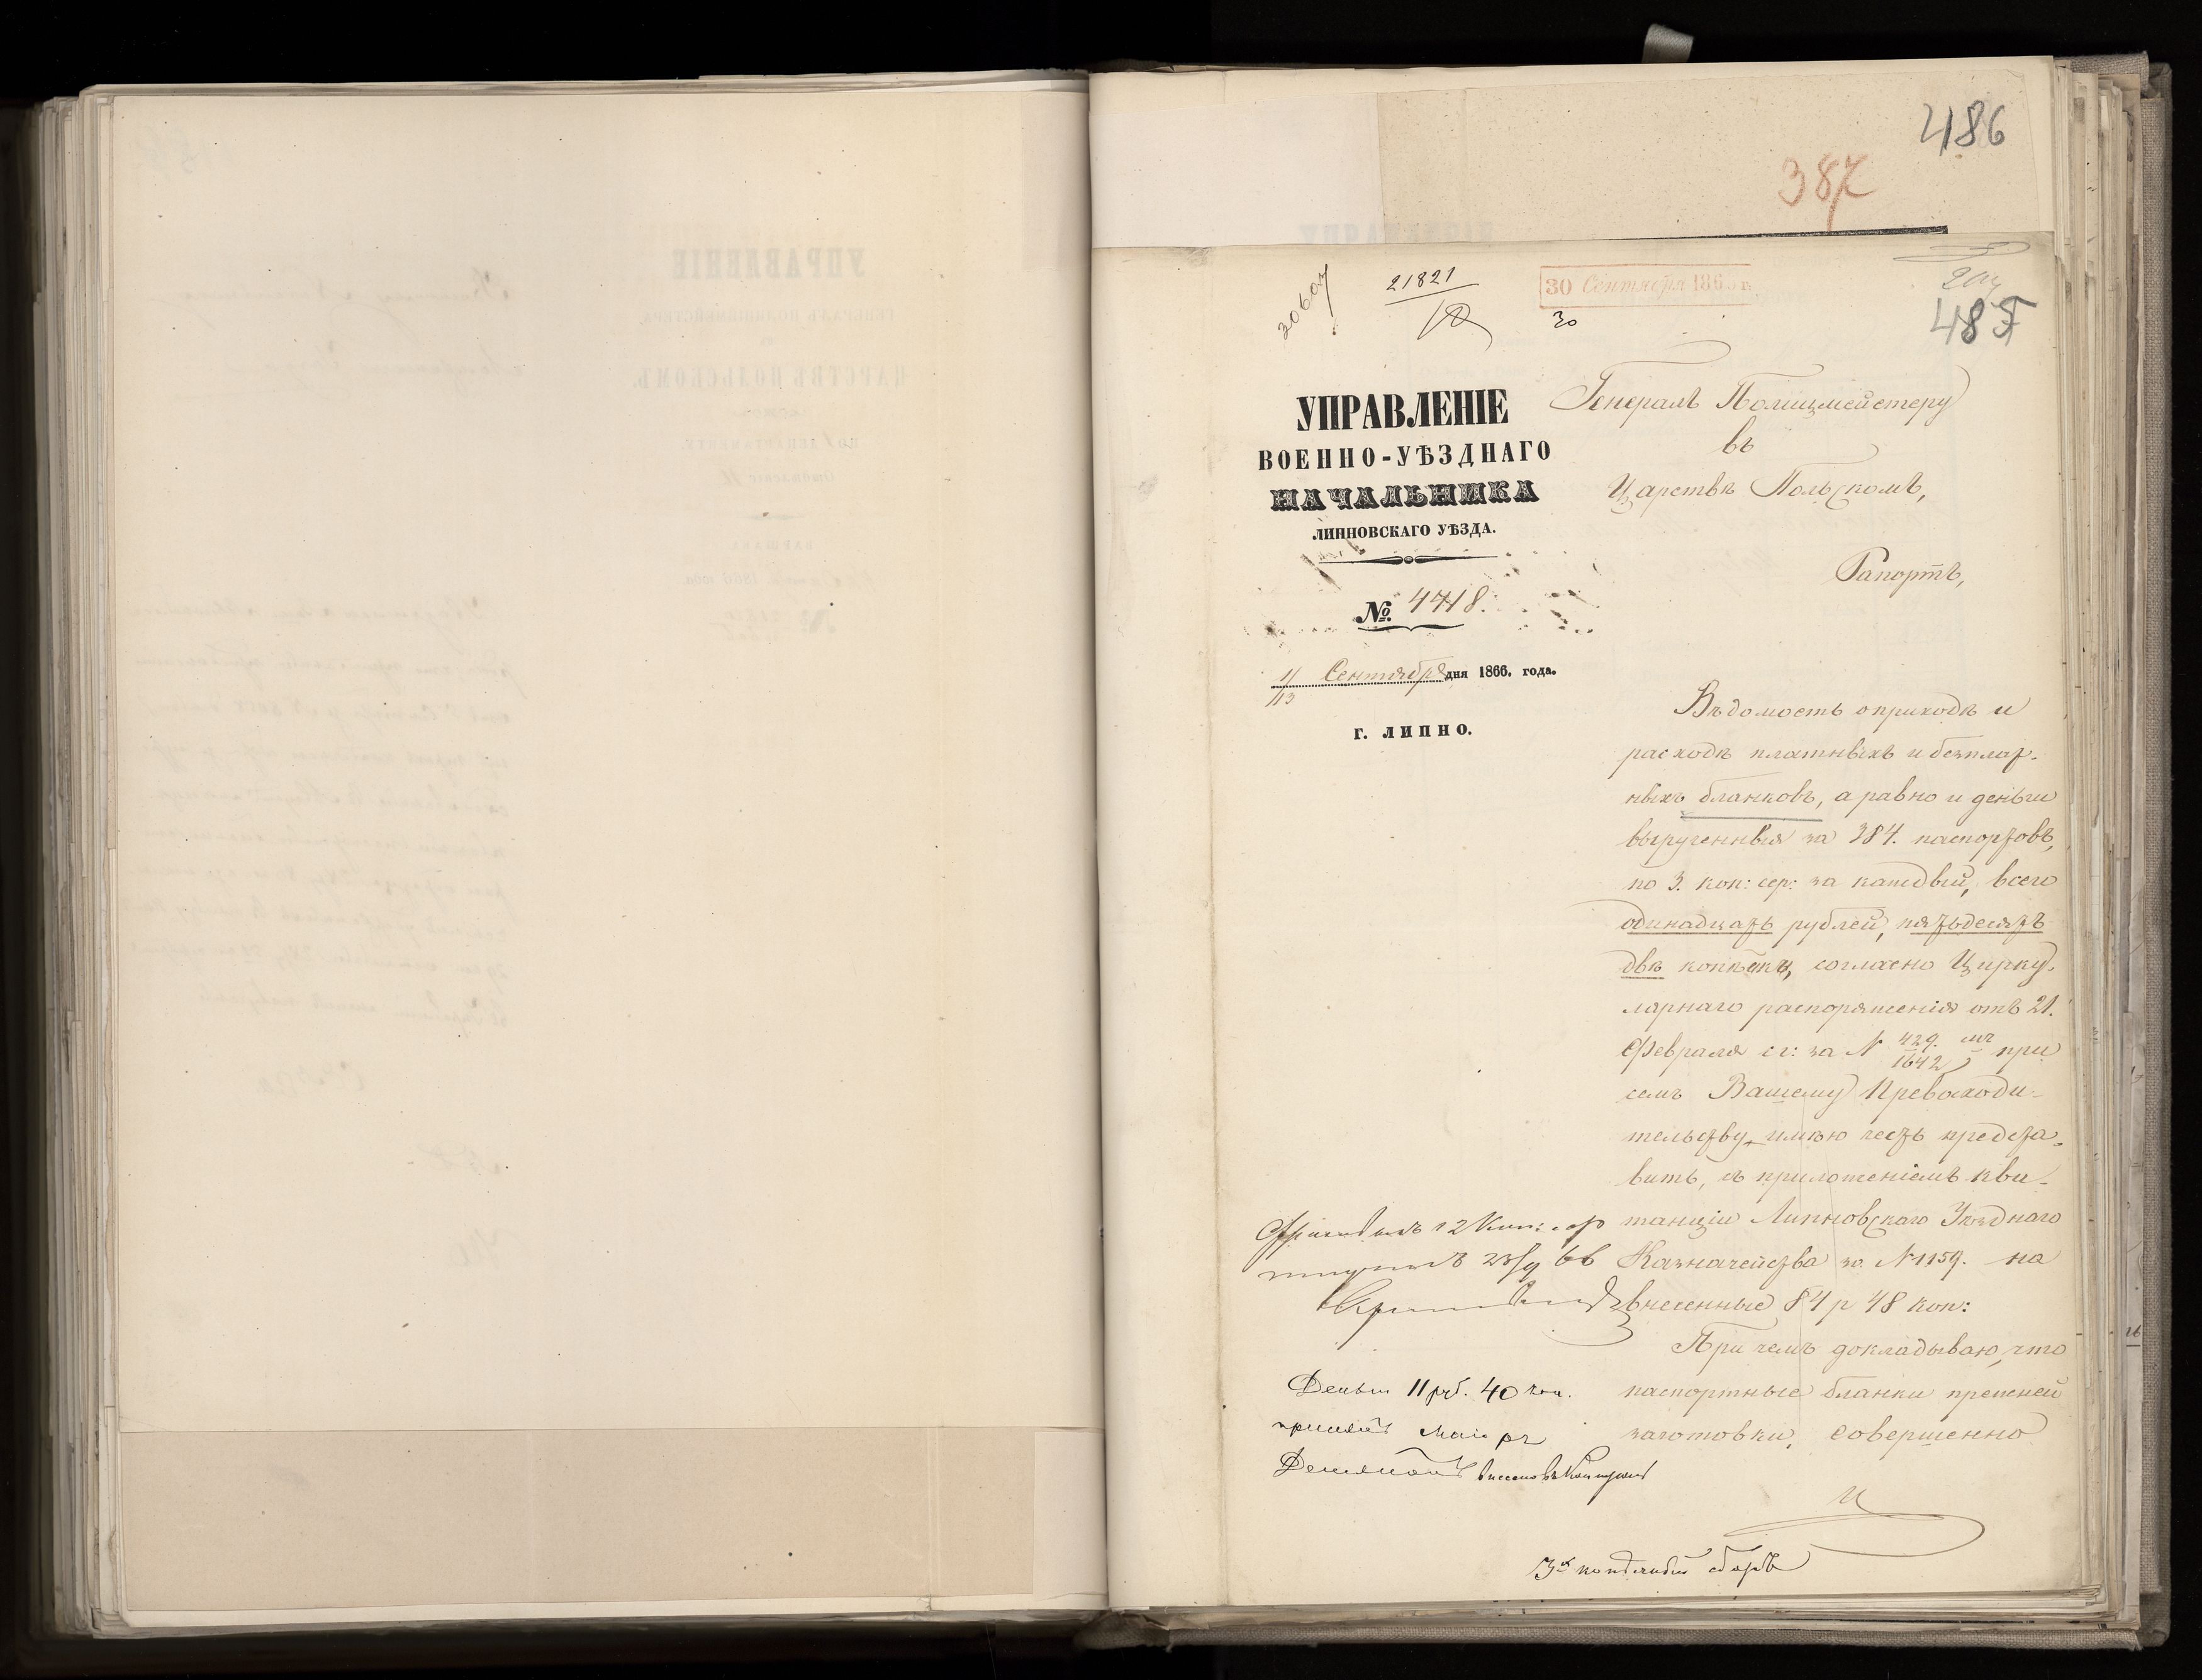 486
387
20607
21821
30 Сентября 186 г.
30
485
УПРАВЛЕНІЕ
ВОЕННО-УѢЗДНАГО
НАЧАЛЬНИКА
ЛИПНОВСКАГО УѢЗДА.
№ 4718.
1/13 Сентября дня 1866. года.
г. ЛИПНО.
Генералъ Полицмейстеру
въ
Царствѣ Польскомъ,
Рапортъ,
Вѣдомость о приходѣ и
расходѣ платныхъ и безплат-
ныхъ бланковъ, а равно и деньги
вырученныя за 384. паспортовъ,
по 3. коп: сер: за каждый, всего
одинадцать рублей, пятьдесятъ
двѣ копѣйки, согласно Цирку-
лярнаго распоряженія отъ 21.
Февраля с г: за N 429/1642, при
семъ Вашему Превосходи-
тельству имѣю честь предста-
вить, съ приложеніемъ кви-
танціи Липновскаго Уѣзднаго
Казначейства за N 1159. на
внесенные 84 р 48 коп:
При чемъ докладываю, что
паспортные бланки прежней
заготовки, совершенно
12 Коп:
23/9 66
Деньги 11 руб. 40 коп.
принялъ Маіоръ
3х копѣечный сборъ